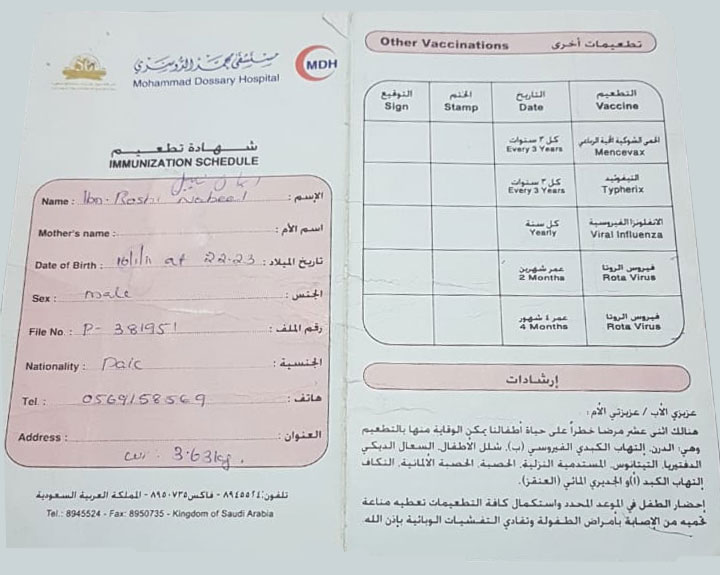 مستشفى محمد الدوسري
Mohammad Dossary Hospital
MDH
شهادة تطعيم
IMMUNIZATION SCHEDULE
Name : Ibn. Roshi Nabeel الإسم :
Mother's name : اسم الأم :
Date of Birth : 16/1/11 at 22.23 تاريخ الميلاد :
Sex : male الجنس :
File No. : P- 381951 رقم الملف :
Nationality : Pak الجنسية :
Tel. : 0569158569 هاتف :
Address : العنوان :
wt : 3.63kg.
تلفون: ٨٩٤٥٥٢٤ - فاكس ٨٩٥٠٧٣٥ - المملكة العربية السعودية
Tel.: 8945524 - Fax: 8950735 - Kingdom of Saudi Arabia
Other Vaccinations تطعيمات أخرى
التوقيع الختم التاريخ التطعيم
Sign Stamp Date Vaccine
كل ٣ سنوات الحمى الشوكية المخية الرباعي
Every 3 Years Mencevax
كل ٣ سنوات التيفوئيد
Every 3 Years Typherix
كل سنة الانفلونزا الفيروسية
Yearly Viral Influenza
عمر شهرين فيروس الروتا
2 Months Rota Virus
عمر ٤ شهور فيروس الروتا
4 Months Rota Virus
إرشادات
عزيزي الأب / عزيزتي الأم :
هنالك اثنى عشر مرضا خطراً على حياة أطفالنا يمكن الوقاية منها بالتطعيم
وهي: الدرن، إلتهاب الكبدي الفيروسي (ب)، شلل الاطفال، السعال الديكي
الدفتيريا، التيتانوس، المستدمية النزلية، الحصبة، الحصبة الألمانية، النكاف
إلتهاب الكبد (أ)و الجديري المائي (العنقز).
إحضار الطفل في الموعد المحدد واستكمال كافة التطعيمات تعطيه مناعة
تحميه من الإصابة بأمراض الطفولة وتفادي التفشيات الوبائية بإذن الله.